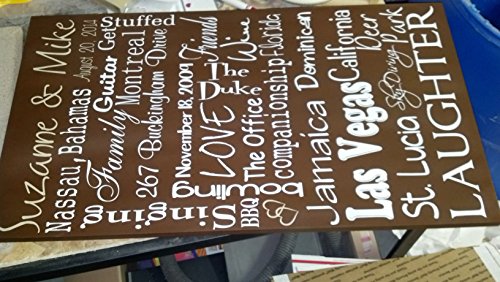 Suzanne & Mike
Nassau, Bahamas August 20, 2014
Guitar Get Stuffed
Family Montreal
267 Buckingham Drive
November 18, 2009
LOVE Friends
The Duke
BBQ The Office Wine
companionship
Jamaica Dominican
Las Vegas California
St. Lucia Sky Diving Deer Park
LAUGHTER